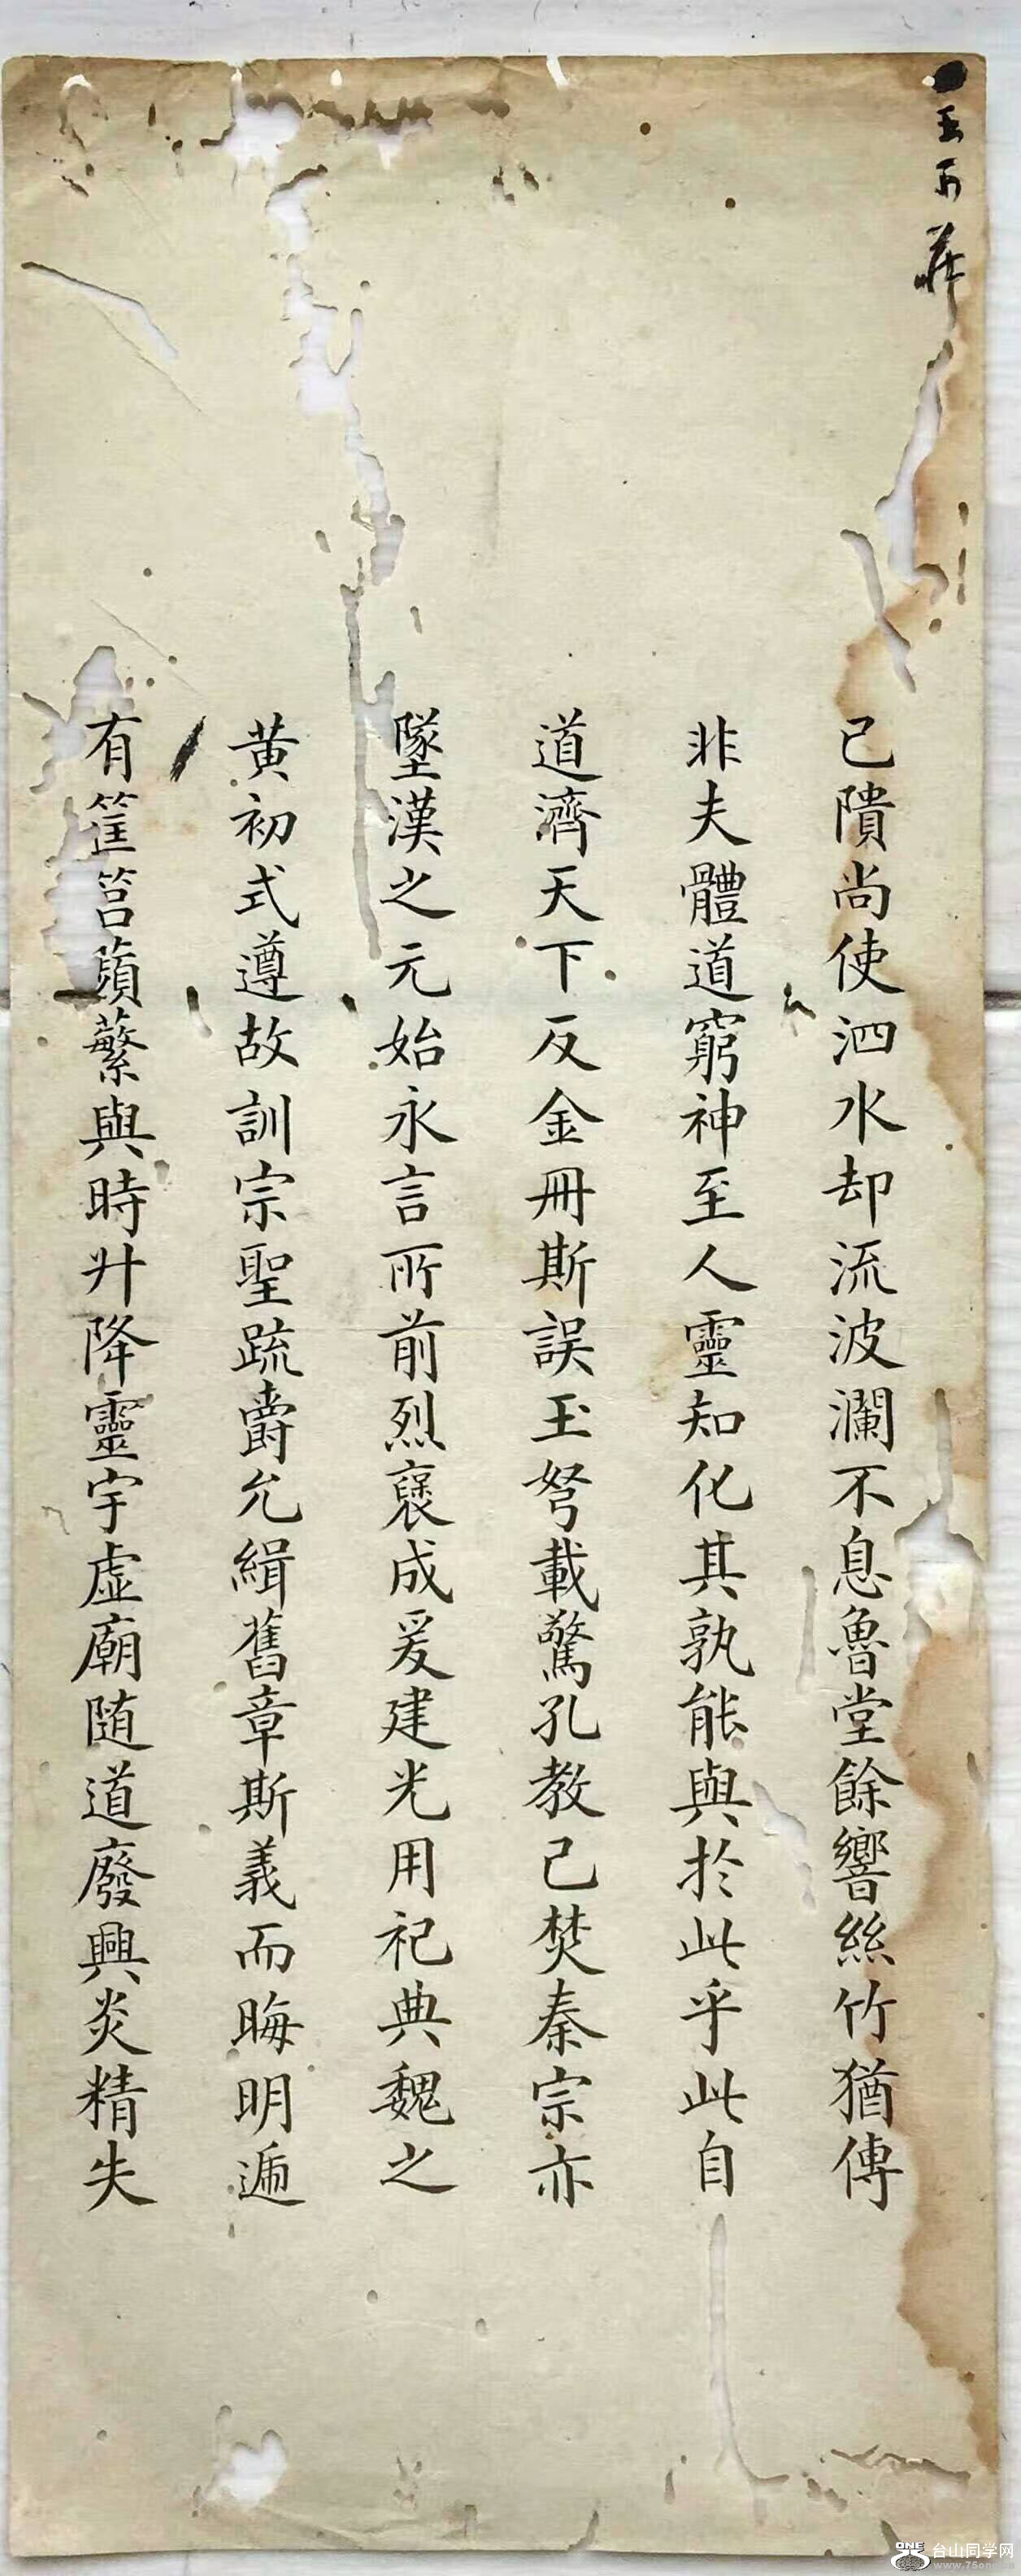 五百
已隤尚使泗水却流波瀾不息魯堂餘響絲竹猶傳
非夫體道窮神至人靈知化其孰能與於此乎此自
道濟天下反金冊斯誤玉弩載驚孔教已焚秦宗亦
墜漢之元始永言所前烈襃成爰建光用祀典魏之
黃初式遵故訓宗聖疏爵允緝舊章斯義而晦明遞
有筐筥蘋蘩與時升降靈宇虛廟随道廢興炎精失
ONE 台山同学网